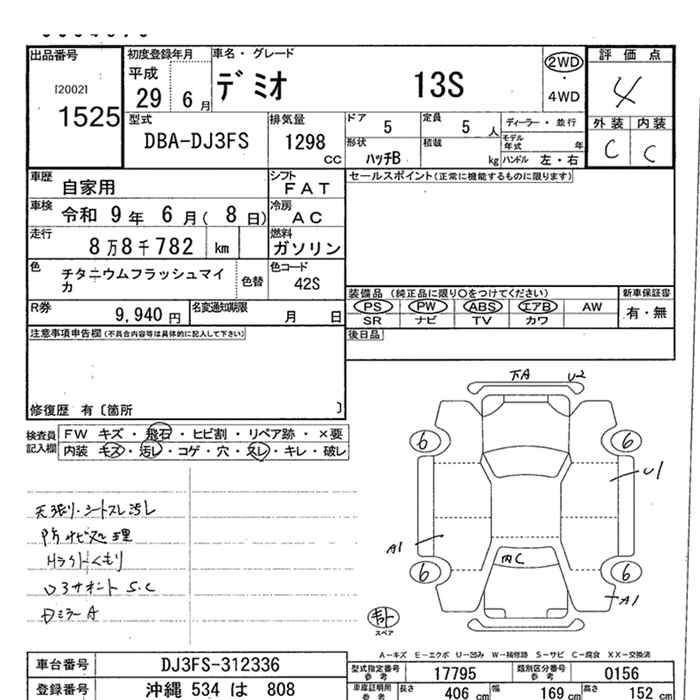 出品番号 初度登録年月 車名・グレード 評価点
平成
[2002] 29 6 月 デミオ 13S 2WD・4WD 4
1525
型式 排気量 ドア 定員 ディーラー・並行 外装 内装
DBA-DJ3FS 1298 CC 5 5 人 モデル年式 年 C C
形状 積載
ハッチB kg ハンドル 左・右
車歴 自家用 シフト FAT セールスポイント(正常に機能するものに限ります)
車検 令和 9 年 6 月( 8 日) 冷房 AC
走行 8 万 8 千 782 km 燃料 ガソリン
色 チタニウムフラッシュマイカ 色替 色コード 42S
装備品 (純正品に限り〇をつけてください) 新車保証書
PS PW ABS エアB AW 有・無
SR ナビ TV カワ
R券 9,940 円 名変通知期限 月 日
注意事項申告欄(不具合内容等は具体的に記入して下さい) 後日品
修復歴 有〔箇所 〕
検査員記入欄 FW キズ・飛石・ヒビ割・リペア跡・×要
内装 キズ・汚レ・コゲ・穴・スレ・キレ・破レ
天張り・シートスレ汚レ
防サビ処理
Hライトくもり
S.C
Dミラー A
下A U-2
6 6
U1
A1
内C
6 6
A1
スペア
A-キズ E-エクボ U-凹み W-補修跡 S-サビ C-腐食 XX-交換済
車台番号 DJ3FS-312336 型式指定番号 参考 17795 類別区分番号 参考 0156
登録番号 沖縄 534 は 808 車庫証明用 参考 長さ 406 cm 幅 169 cm 高さ 152 cm